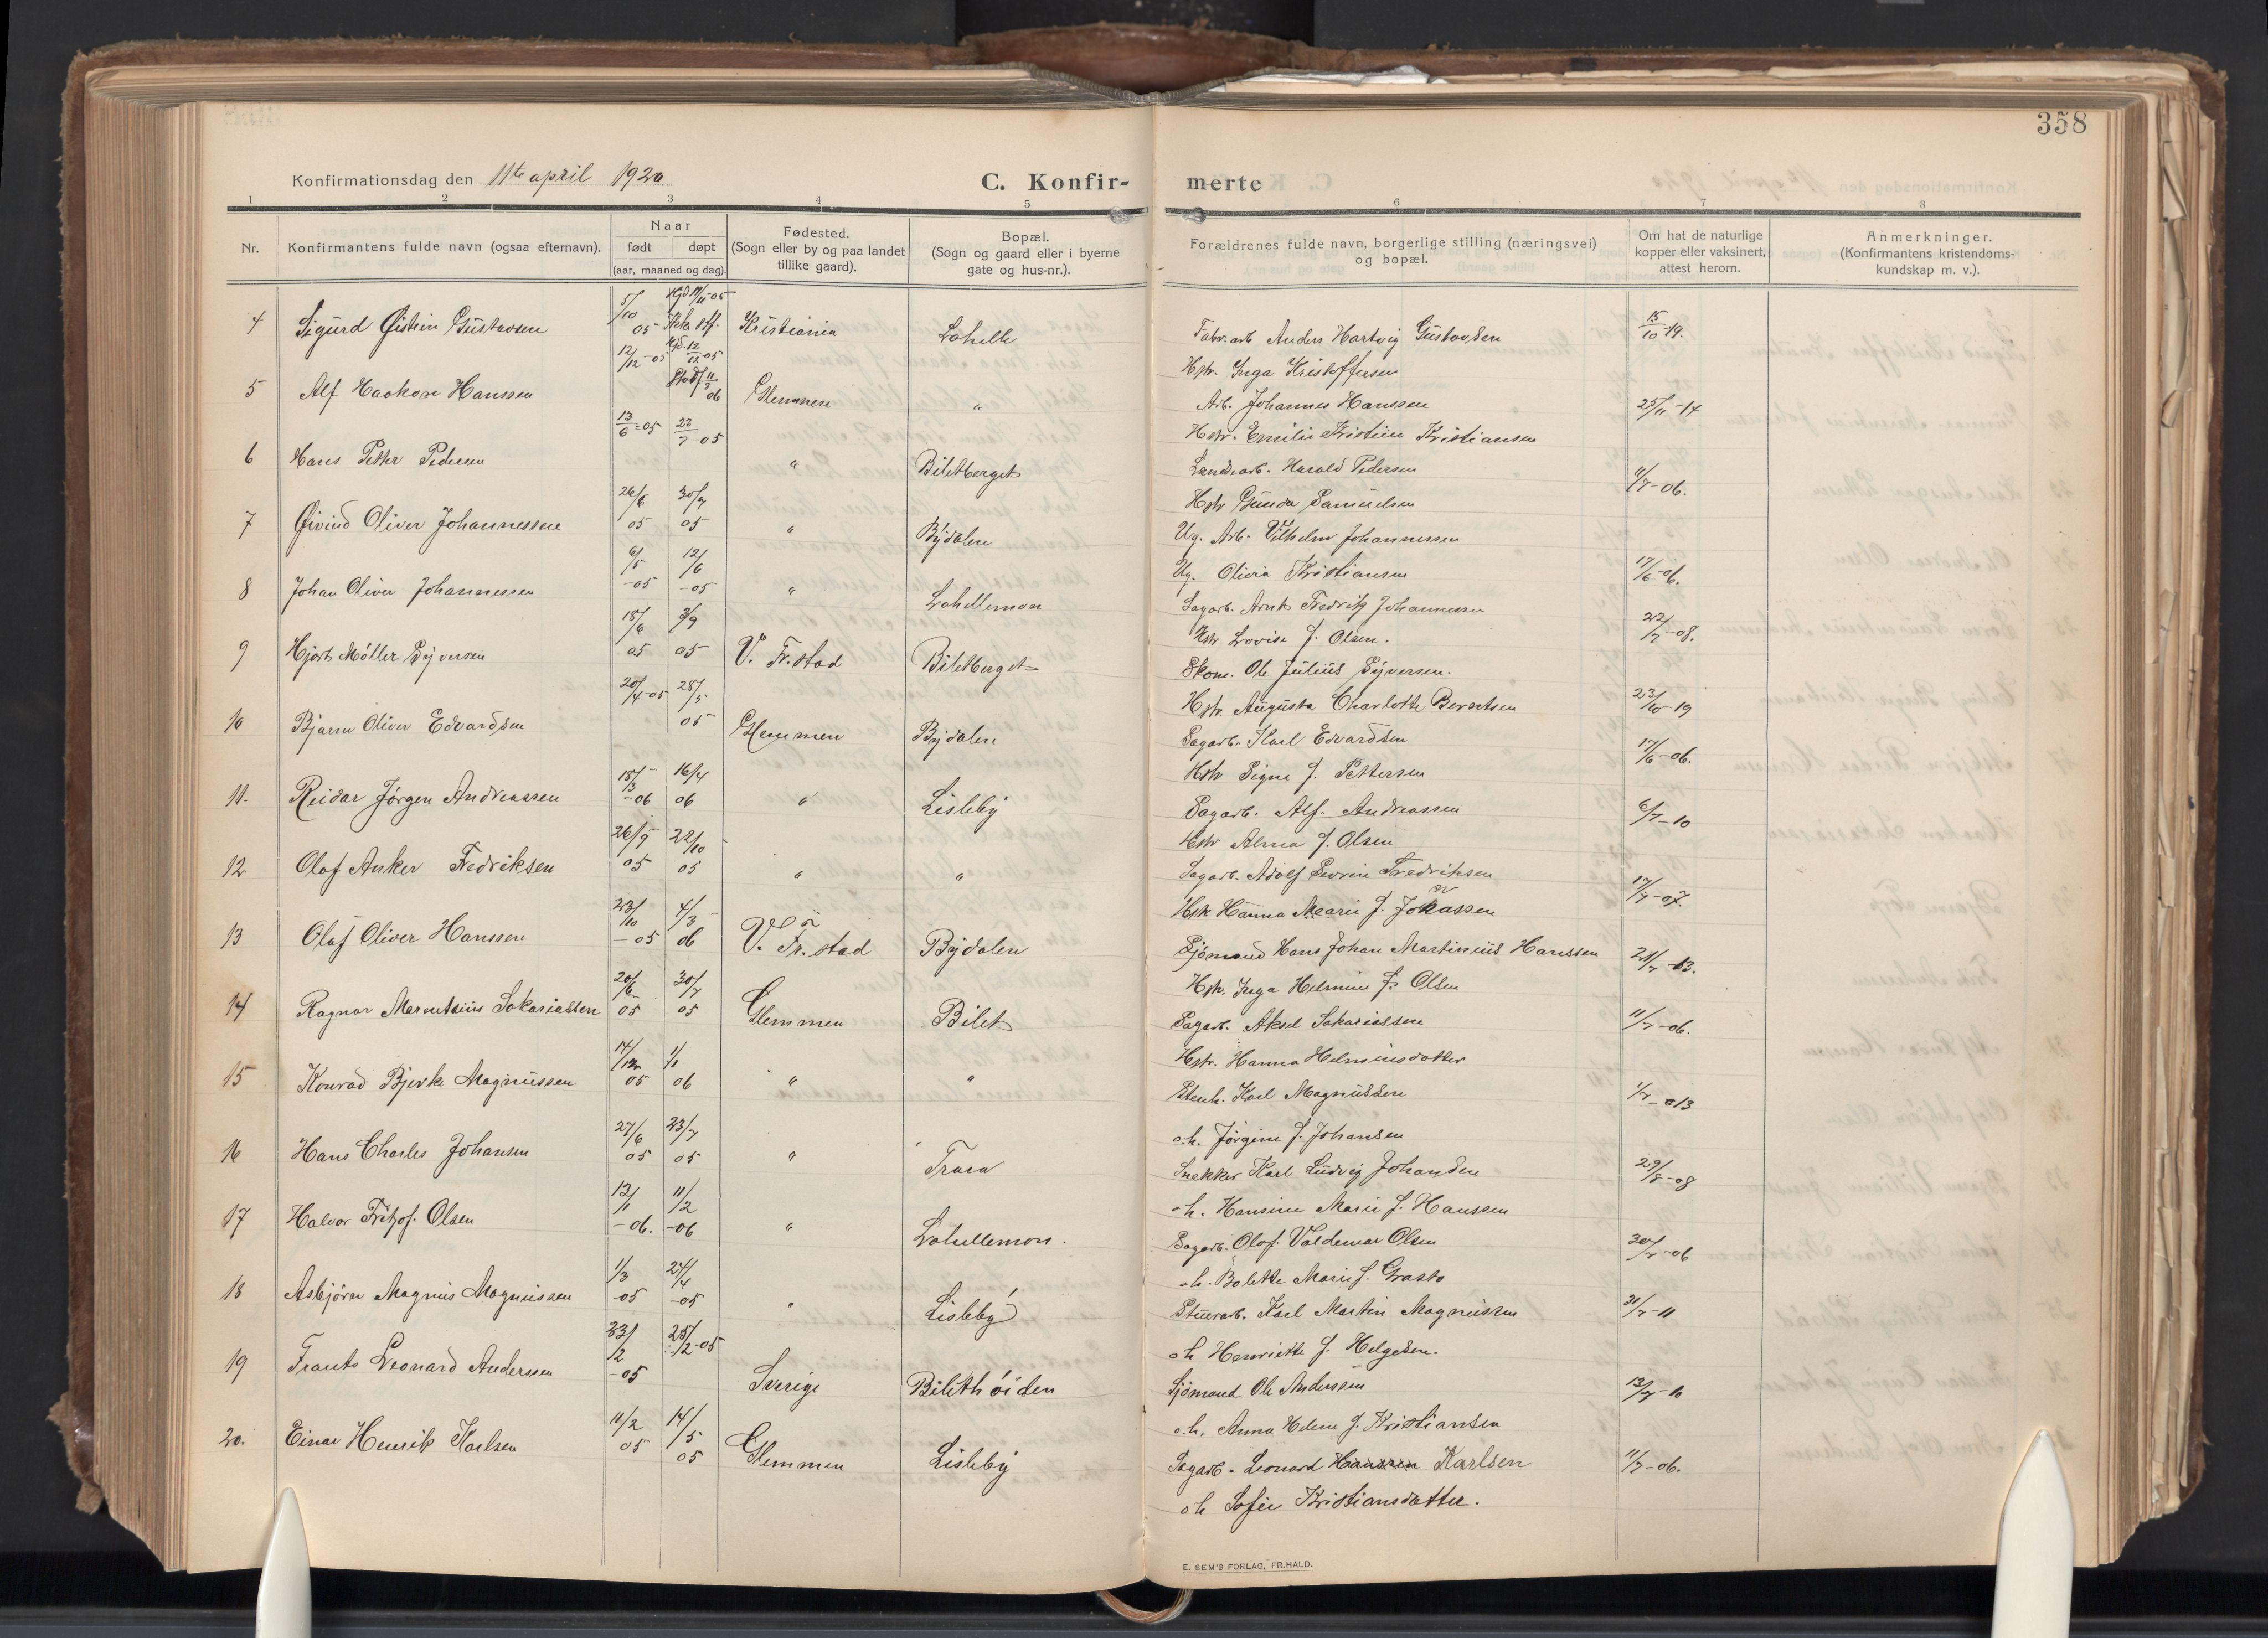 358
Konfirmationsdag den 11te april 1920
C. Konfir-
merte
1 2 3 4 5 6 7 8
Nr.
Konfirmantens fulde navn (ogsaa efternavn).
Naar
født døpt
(aar, maaned og dag).
Fødested.
(Sogn eller by og paa landet
tillike gaard).
Bopæl.
(Sogn og gaard eller i byerne
gate og hus-nr.).
Forældrenes fulde navn, borgerlige stilling (næringsvei)
og bopæl.
Om hat de naturlige
kopper eller vaksinert,
attest herom.
Anmerkninger.
(Konfirmantens kristendoms-
kundskap m. v.).
4 Sigurd Øistein Gustavsen 5/10 05 Hjd 11/11-05 Kristiania Lahelle Fabr.arb Anders Hartvig Gustavsen 15/10-19.
Hstr. Inga Kristoffersen
5 Alf Haakon Hanssen 12/12-05 Hjd. 12/12 05 Stadf 11/3 06 Glemmen " Arb. Johannes Hanssen 25/11-14
Hstr. Emilie Kristine Kristiansen
6 Hans Petter Pedersen 13/6-05 23/7-05 " Biletberget Landearb. Harald Pedersen 11/7-06.
Hstr Gunda Samuelsen
7 Øivind Oliver Johannessen 26/6 05 30/7 05 " Bydalen Ug. Arb. Vilhelm Johannessen
Ug. Olivia Kristiansen 17/6-06.
8 Johan Oliver Johannessen 6/5-05 12/6-05 " Lahellemon Sagarb. Arnt Fredrik Johannessen
Hstr Lovise f. Olsen. 22/7-08.
9 Hjort Møller Syversen 18/6 05 3/9 05 V. Fr.stad Biletberget Skom. Ole Julius Syversen.
Hstr Augusta Charlotte Berntsen 23/10-19
10 Bjarne Oliver Edvardsen 20/4-05 28/5 05 Glemmen Bydalen Sagarb. Karl Edvardsen 17/6-06.
Hstr Signe f. Pettersen
11. Reidar Jørgen Andreassen 18/3-06 16/4 06 " Lisleby Sagarb. Alf. Andreassen 6/7-10
Hstr Alma f. Olsen
12 Olaf Anker Fredriksen 26/9 05 22/10 05 " " Sagarb. Adolf Severin Fredriksen
Hstr Hanna Marie f. Jonassen 17/7-07.
13 Olaf Oliver Hanssen 23/10-05 4/3 06 V. Fr.stad Bydalen Sjømand Hans Johan Martinius Hanssen 21/7-13.
Hstr. Inga Helmine f. Olsen
14 Ragnar Marentsius Sakariassen 20/6 05 30/7 05 Glemmen Bilet Sagarb. Aksel Sakariassen 11/7-06.
Hstr. Hanna Helminsdotter
15 Konrad Bjerke Magnussen 14/12 05 1/1 06 " " Stenh. Karl Magnussen 1/7-013
o.h. Jørgine f. Johansen
16 Hans Charles Johansen 27/6 05 23/7 05 " Trara Snekker Karl Ludvig Johansen 29/8-08
o.h. Hansine Marie f. Hanssen
17 Halvor Fritjof. Olsen 12/1-06. 11/2-06 " Lahellemon. Sagarb. Olof Valdemar Olsen 30/7-06
o.h. Bolette Marie f. Grasto
18 Asbjørn Magnus Magnussen 1/3-05 24/4-05 " Lisleby Stuerarb. Karl Martin Magnussen 31/7-11
o.h Henriette f. Helgesen.
19 Frants Leonard Anderssen 23/2-05 25/12-05 Sverige Bilethøiden Sjømand Ole Anderssen 13/7-10
o.h. Anna Helene f. Kristiansen
20. Einar Henrik Karlsen 11/2 05 14/5 05 Glemmen Lisleby Sagarb. Leonard Hanssen Karlsen 11/7-06.
o h Sofie Kristiansdatter.
E. SEM'S FORLAG, FR.HALD.